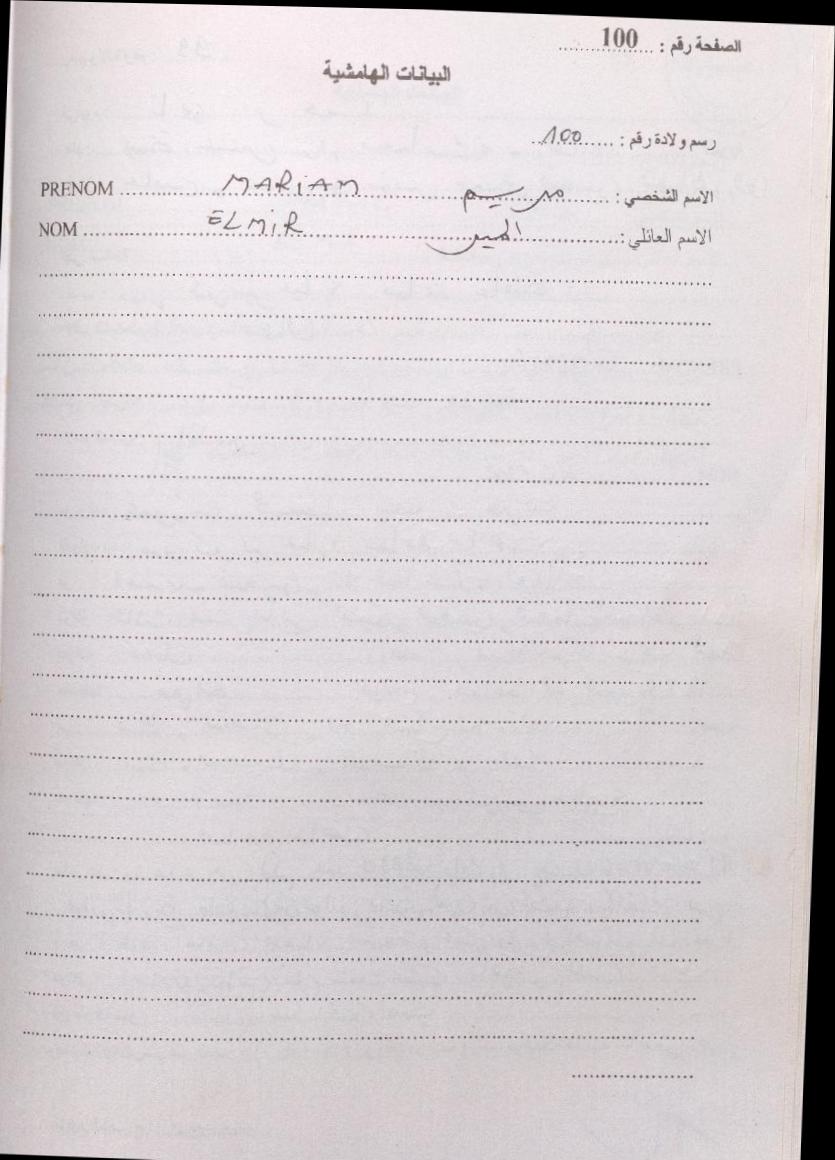 الصفحة رقم : 100
البيانات الهامشية
رسم ولادة رقم : 100
الاسم الشخصي : مريم PRENOM MARIAM
الاسم العائلي : المير NOM ELMIR